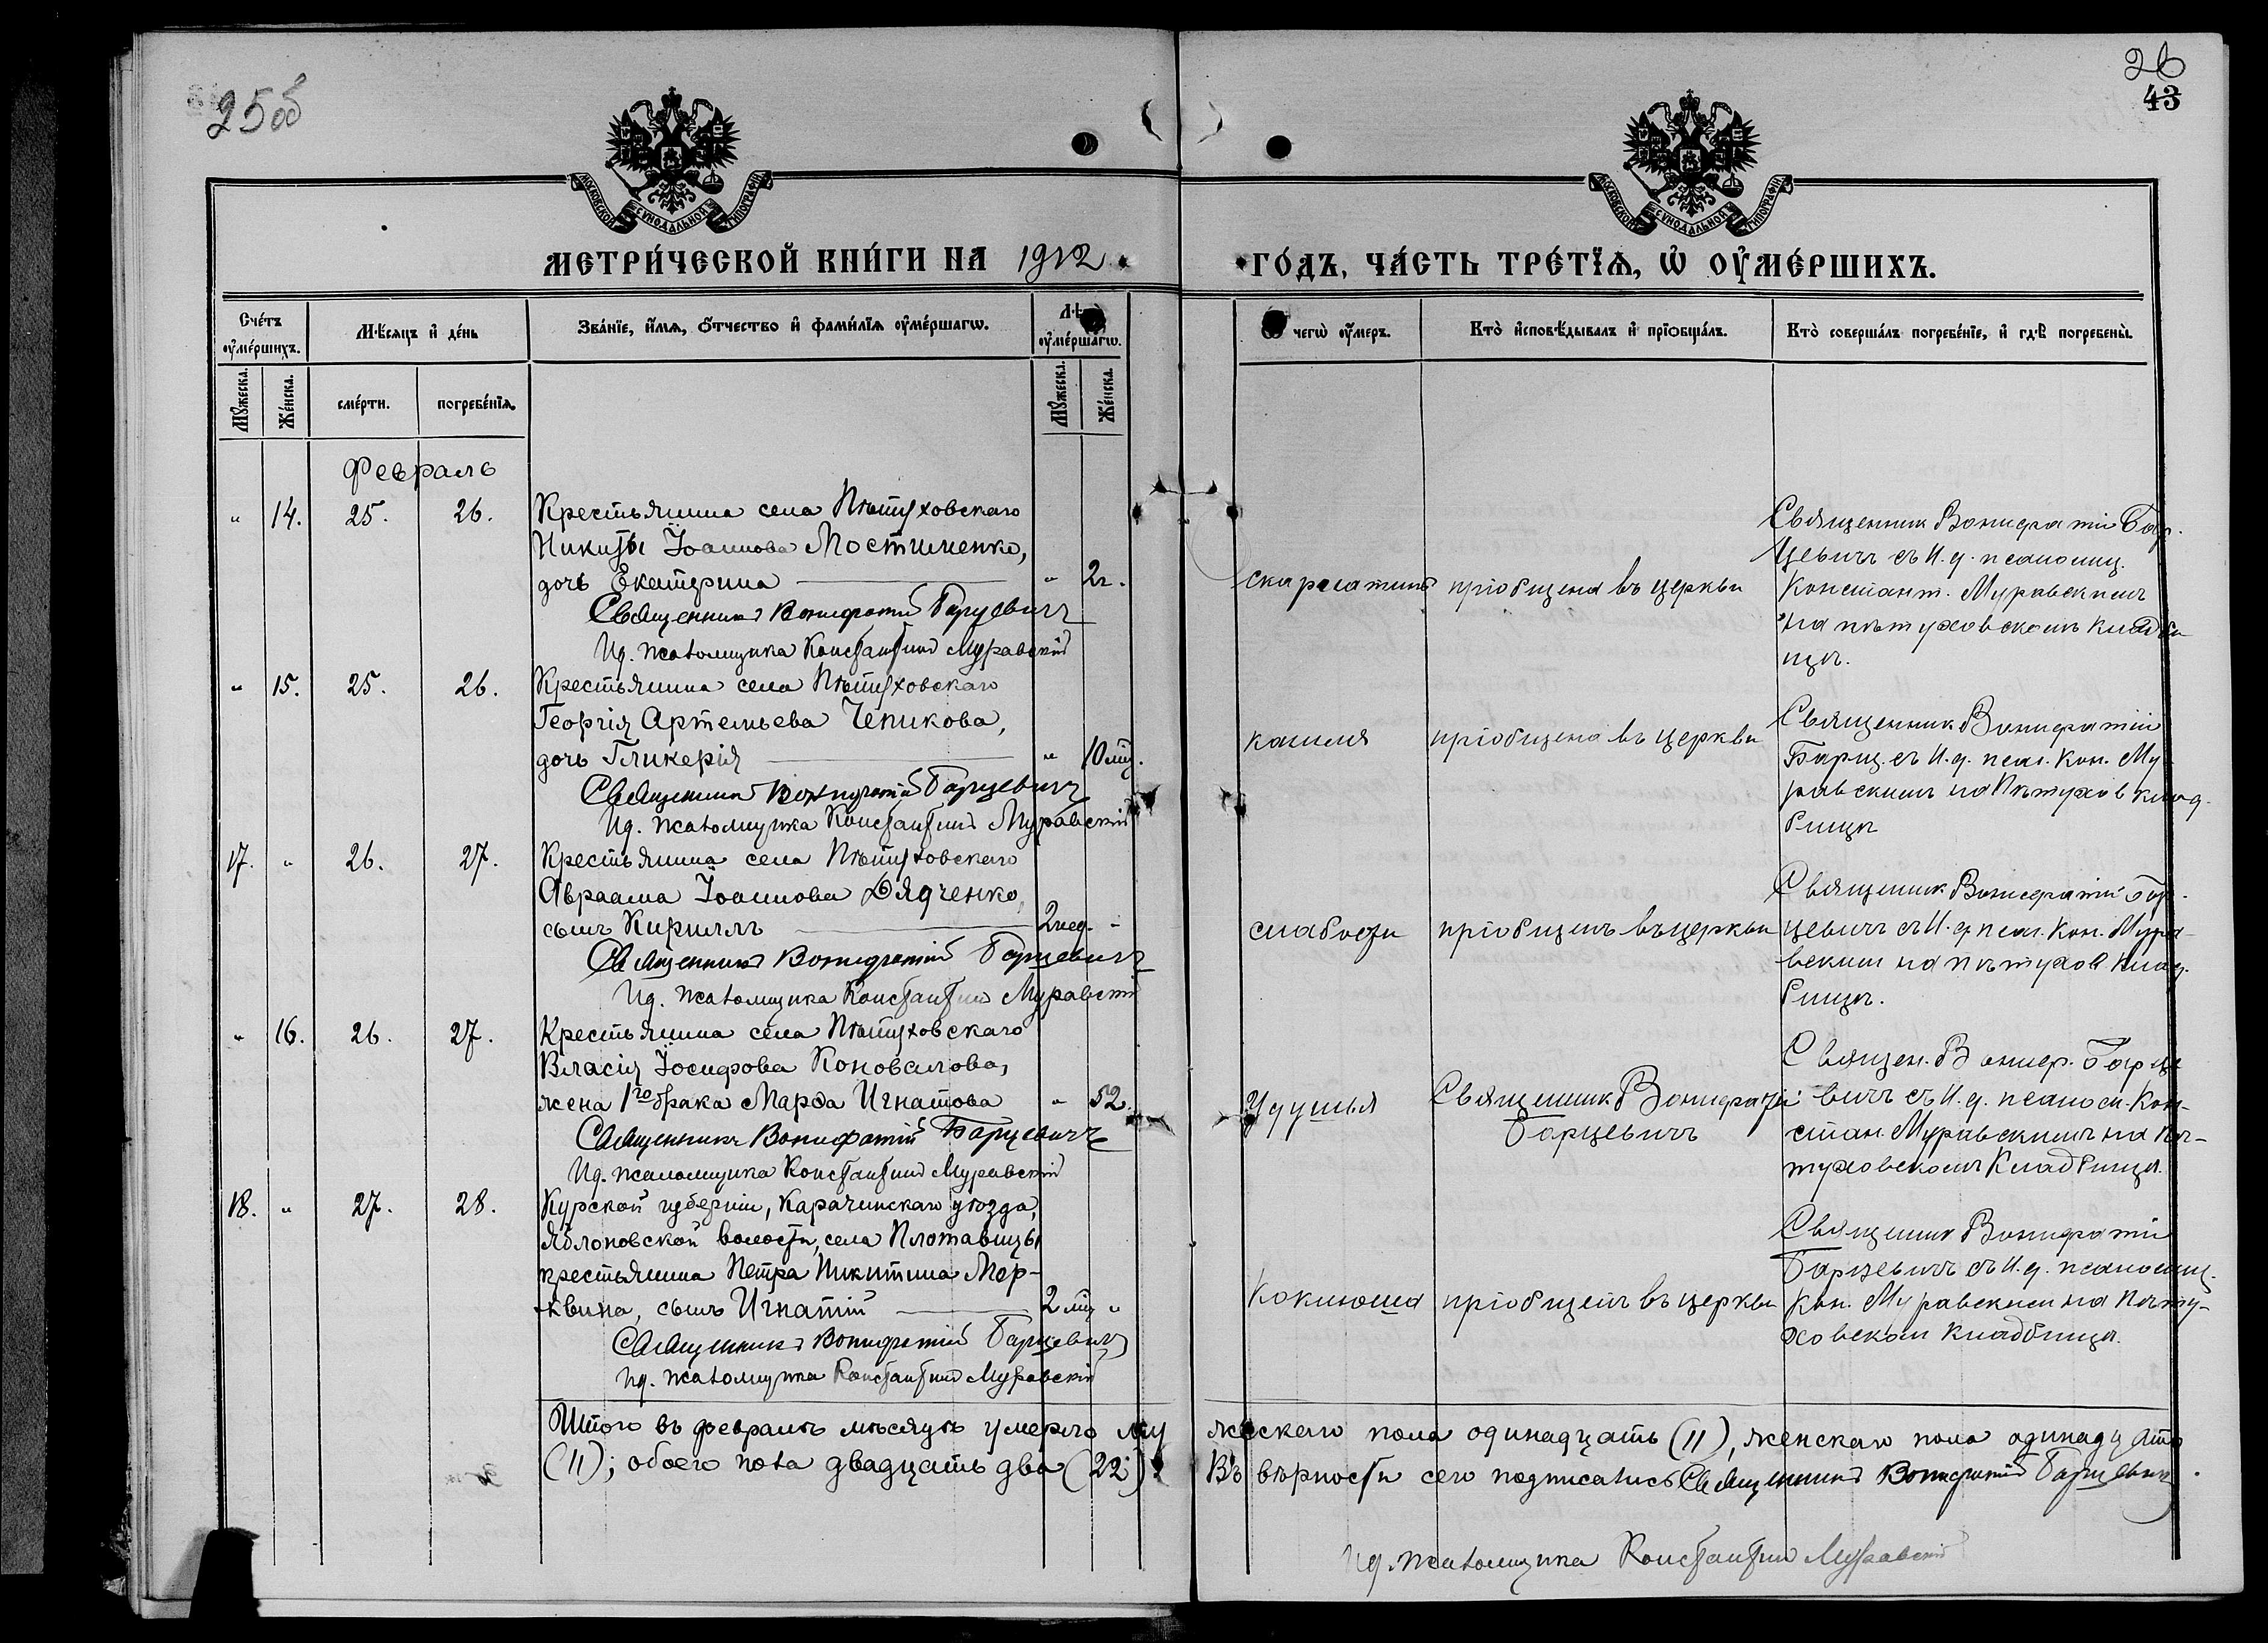 25об
26
43
МОСКОВСКОЙ СѴНОДАЛЬНОЙ ТИПОГРАФІИ
МОСКОВСКОЙ СѴНОДАЛЬНОЙ ТИПОГРАФІИ
МЕТРИ́ЧЕСКОЙ КНИ́ГИ НА 1912
ГО́ДЪ, ЧА́СТЬ ТРЕ́ТЇѦ, Ѡ҆ ОУ҆МЕ́РШИХЪ.
Сче́тъ оу҆ме́ршихъ.
Мѣ́сяцъ и҆ де́нь
Зва́нїе, и҆́мѧ, ѻ҆́тчество и҆ фами́лїѧ оу҆ме́ршагѡ.
Лѣ
оу҆ме́ршагѡ.
Ѿ чегѡ̀ оу҆́меръ.
Кто̀ и҆сповѣ́дывалъ и҆ прїѻбща́лъ.
Кто̀ соверша́лъ погребе́нїе, и҆ гдѣ̀ погребены̀.
Мꙋ́жеска.
Же́нска.
сме́рти.
погребе́нїѧ.
Мꙋ́жеска.
Же́нска.
Февраль
" 14. 25. 26. Крестьянина села Пѣтуховскаго
Никиты Іоаннова Мостименко,
дочь Екатерина " 2г.
Священникъ Вонифатій Барцевичъ
Ид. псаломщика Константинъ Муравскій
скарлатины пріобщена въ церкви
Священникъ Вонифатій Бар-
цевичъ съ И.д. псаломщ.
Констант. Муравскимъ
на пѣтуховскомъ кладби
щѣ.
" 15. 25. 26. Крестьянина села Пѣтуховскаго
Георгія Артемьева Чепикова,
дочь Гликерія " 10 мѣ.
Священникъ Вонифатій Барцевичъ
Ид. псаломщика Константинъ Муравскій
кашля пріобщена въ церкви
Священник Вонифатій
Барц. съ И.д. псал. Кон. Му
равскимъ на Пѣтухов клад-
бищѣ
17. " 26. 27. Крестьянина села Пѣтуховскаго
Авраама Іоаннова Дядченко,
сынъ Кириллъ 2 нед. "
Священникъ Вонифатій Барцевичъ
Ид. псаломщика Константинъ Муравскій
слабости пріобщенъ въ церкви
Священник Вонифатій Бар-
цевичъ съ И.д псал. Кон. Мура-
вским на пѣтухов клад-
бищѣ.
" 16. 26. 27. Крестьянина села Пѣтуховскаго
Власія Іосифова Коновалова,
жена 1го брака Марѳа Игнатова " 52.
Священникъ Вонифатій Барцевичъ
Ид. псаломщика Константинъ Муравскій
Удушья Священник Вонифатій
Барцевичъ
Священ. Вониф. Барце
вичъ съ И.д. псалом. Кон-
стан. Муравскимъ на Пѣ-
туховском Кладбищѣ.
18. " 27. 28. Курской губерніи, Карачинскаго уѣзда,
Яблоновской волости, села Плотавицы
крестьянина Петра Никитина Мор-
квина, сынъ Игнатій 2 мѣ "
Священникъ Вонифатій Барцевичъ
Ид. псаломщика Константинъ Муравскій
Коклюша пріобщенъ въ церкви
Священник Вонифатій
Барцевичъ съ И.д. псаломщ.
Кон. Муравским на Пѣту-
ховском кладбищѣ.
Итого въ февралѣ мѣсяцѣ умерло мужескаго пола одинадцать (11), женскаго пола одинадцать
(11); обоего пола двадцать два (22). Въ вѣрности сего подписались Священникъ Вонифатій Барцевичъ.
Ид. псаломщика Константинъ Муравскій